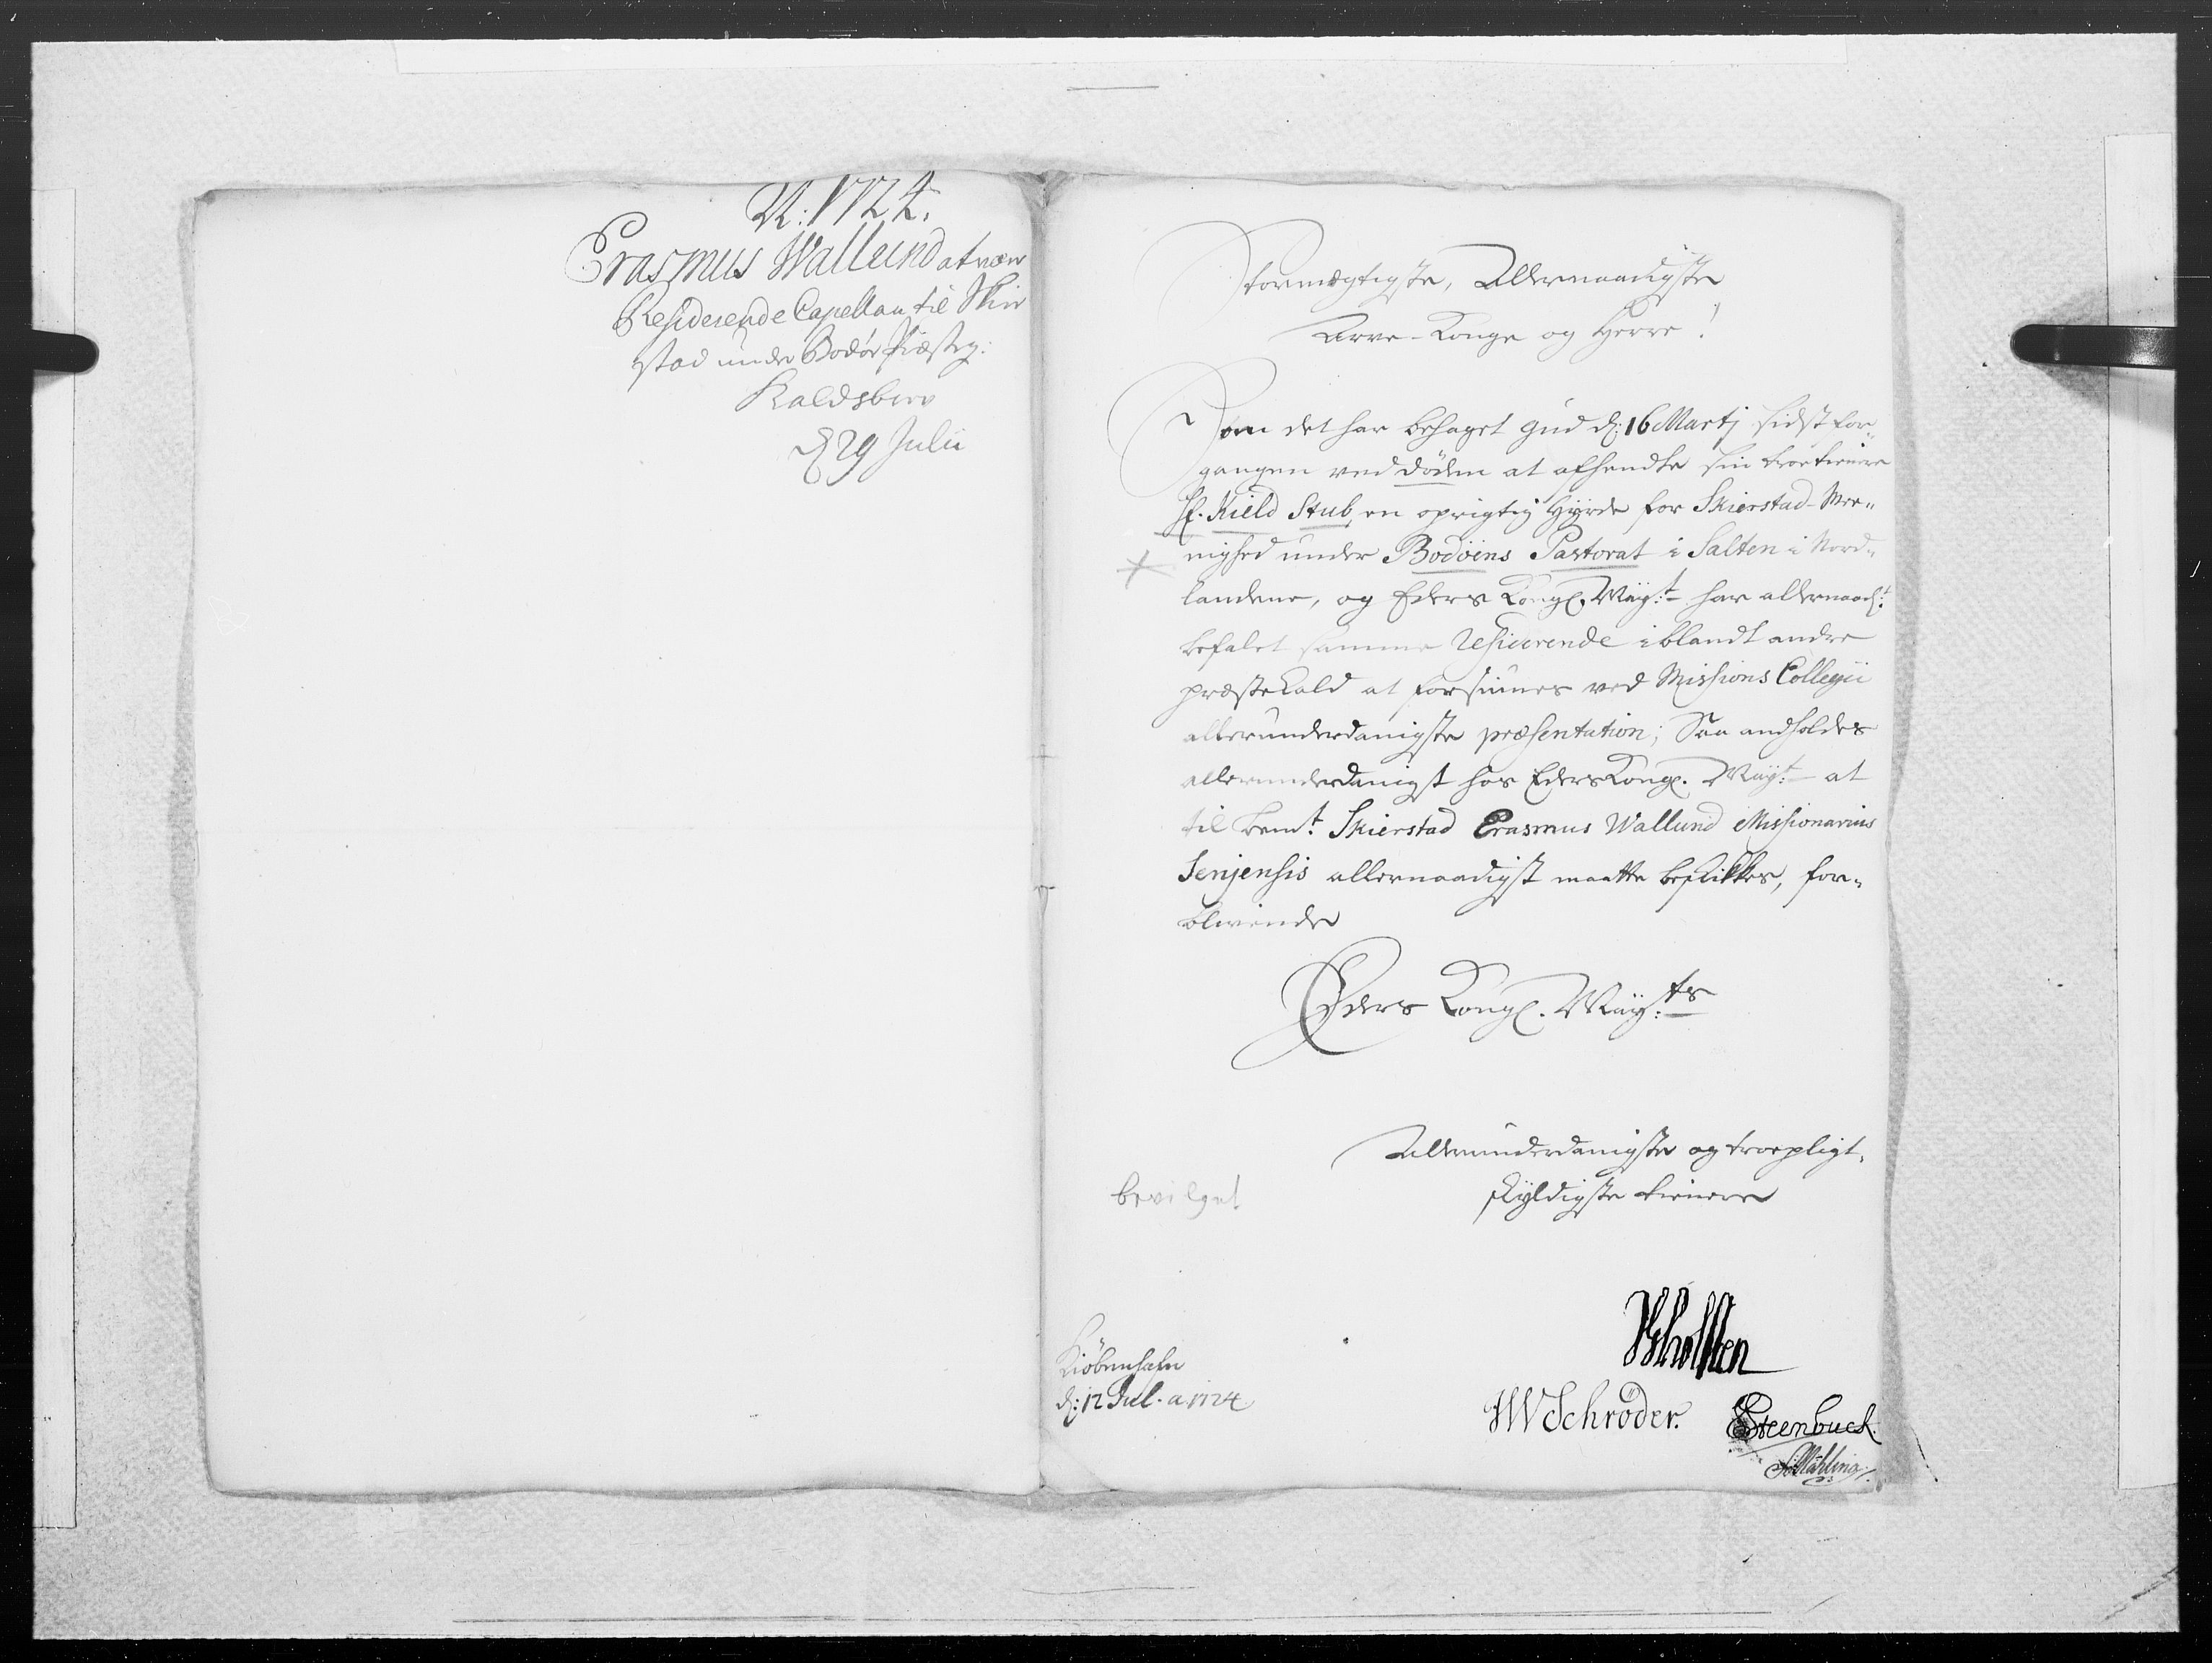 A: 1724.
Erasmus Wallund at være
Residerende Capellan til Skier
stad under Bodøe Præsteg:
Kaldsbrev
d 29 Julii
Stormægtigste, Allernaadigste
Arve-Konge og Herre!
Som det har behaget Gud d: 16 Martj sidst for„
gangen ved døden at afhendte sin troe tienere
Hr. Kield Stub, en oprigtig Hyrde for Skierstad-Mee„
nighed under Bodøens Pastorat i Salten i Nord„
landene, og Eders Kongl. Mayt: har allernaadt:
befalet samme Residerende iblandt andre
præstekald at forsiunes ved Missions Collegii
allerunderdanigste præsentation; Saa andholdes
allerunderdanigst hos Eders Kongl. Mayt: at
til bemt: Skierstad Erasmus Wallund Missionarius
Senjensis allernaadigst maatte beskikkes, for„
blivende
Eders Kongl. May:ts
Allerunderdanigste og troepligt,
skyldigste tienere
bevilget
Kiöbenhafn
d: 12 Jul. a. 1724
JGHolsten
JWSchröder.
Steenbuch